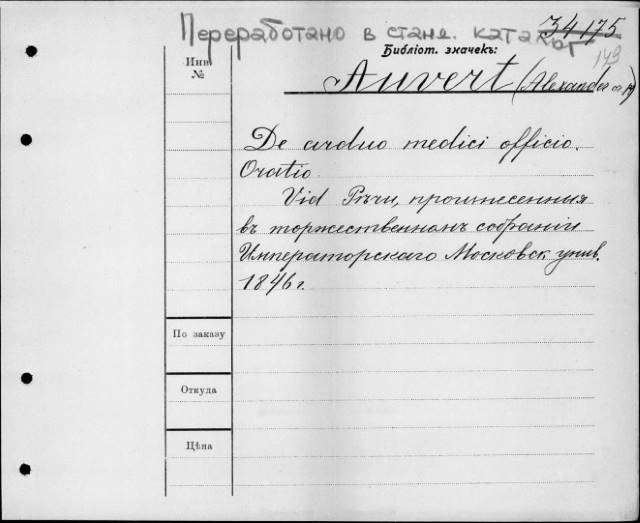 Переработано в стане. каталог
34175
Библіот. значекъ:
149
Инв.
№
Auvert (Alexander a
De arduo medici officio.
Oratio
Vid Рѣчи, произнесенныя
въ торжественномъ собраніи
Императорскаго Московск унив.
1846 г.
По заказу
Откуда
Цѣна